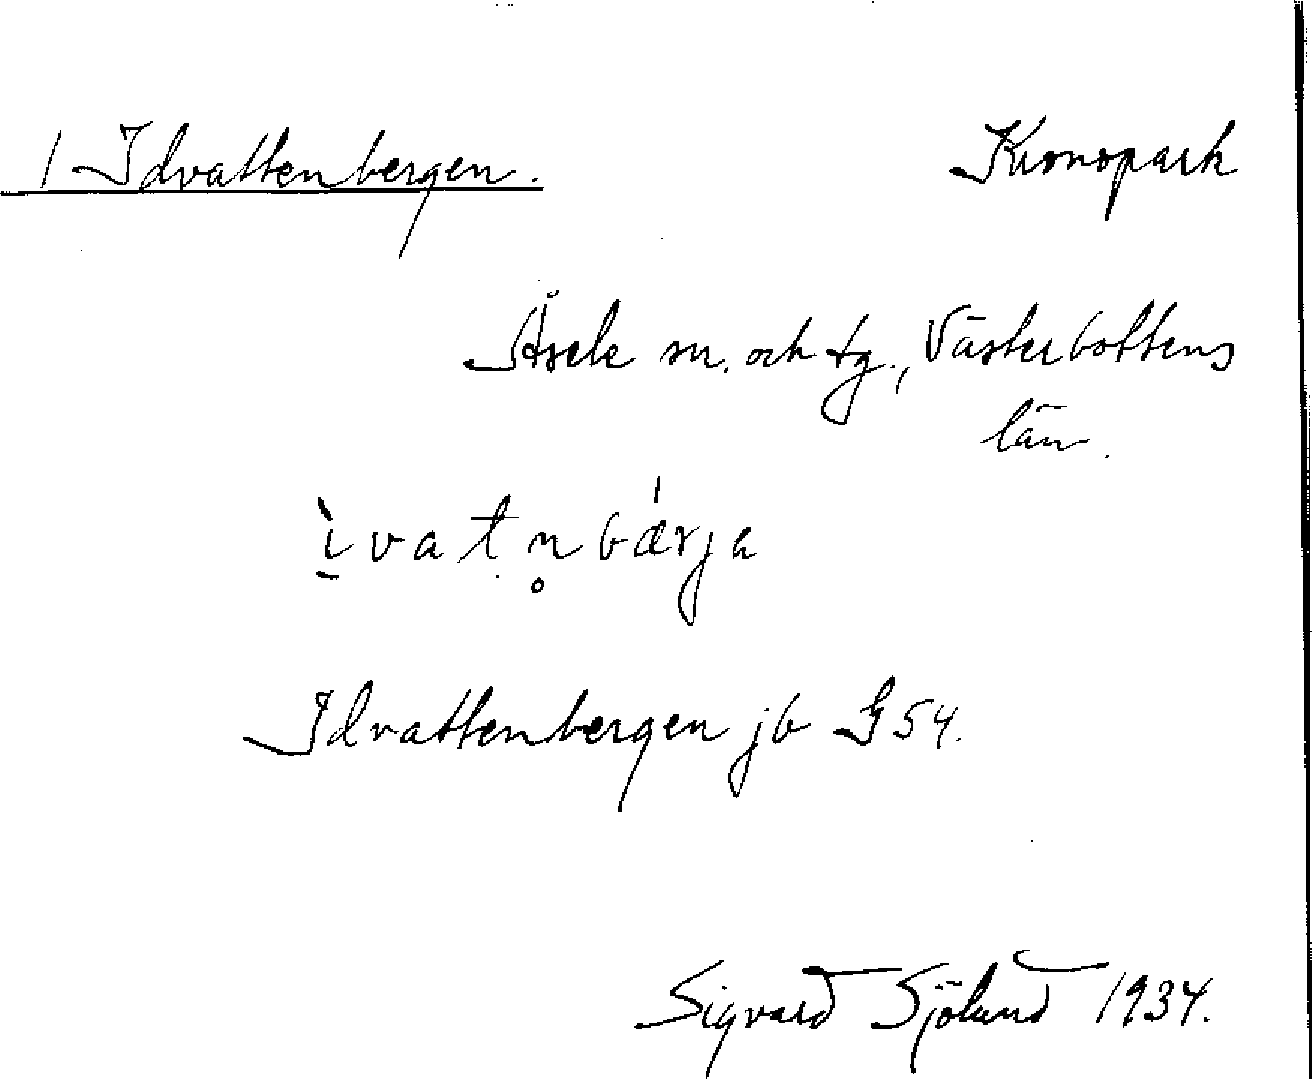 1 Idvattenbergen.
Kronopark
Åsele sn. och tg., Västerbottens
län.
ì̱vatn̥bǽrja
Idvattenbergen jb G 54.
Sigvard Sjölund 1934.